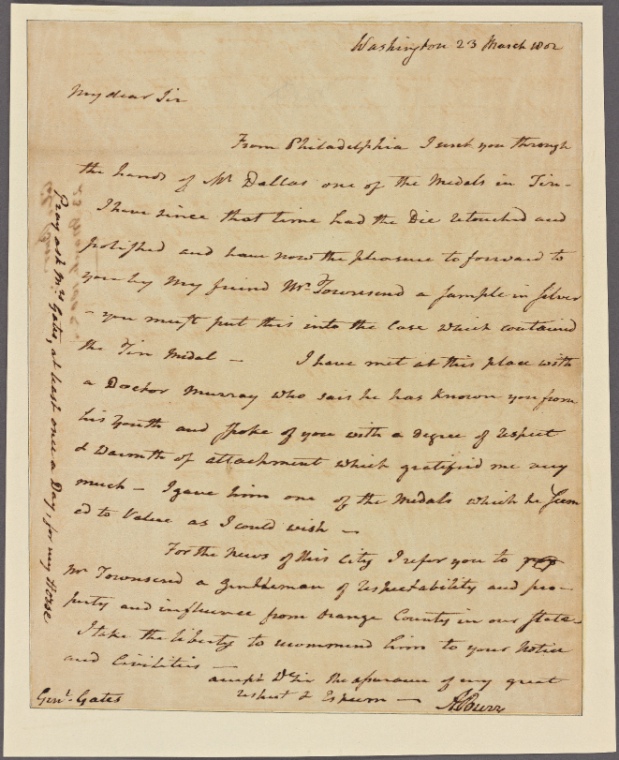 Washington 23 March 1802
My dear Sir
From Philadelphia I sent you through
the hands of Mr Dallas one of the Medals in Tin-
I have since that time had the Die retouched and
polished and have now the pleasure to forward to
you by My friend Mr Townsend a Sample in Silver
- you must put this into the Case which contained
the Tin Medal - I have met at this place with
a Doctor Murray who sais he has known you from
his Youth and spoke of you with a degree of respect
& Warmth of attachment which gratified me very
much - I gave him one of the Medals which he Seem
ed to Value as I could wish -
For the News of this City I refer you to
Mr Townsend a gentleman of respectability and pro-
perty and influence from Orange County in our State
I take the liberty to recommend him to your Notice
and Civilities -
accept Dr Sir the assurance of my great
respect & Esteem -
A Burr
Genl Gates
Pray ask Mrs Gates, at least once a Day, for my Horse